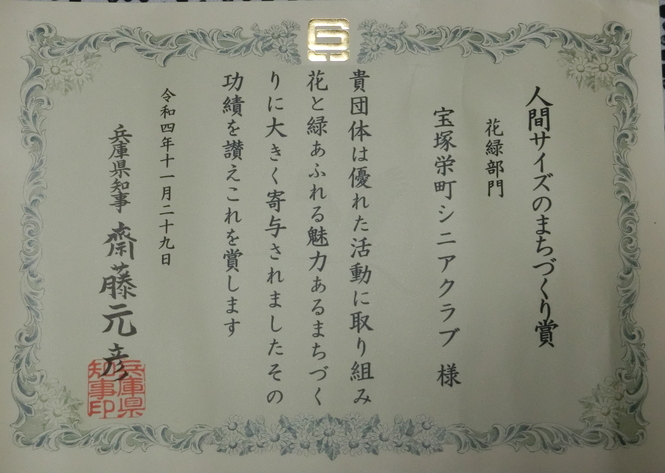 人間サイズのまちづくり賞
花緑部門
宝塚栄町シニアクラブ 様
貴団体は優れた活動に取り組み
花と緑あふれる魅力あるまちづく
りに大きく寄与されましたその
功績を讃えこれを賞します
令和四年十一月二十九日
兵庫県知事 齋藤元彦
兵庫県
知事印